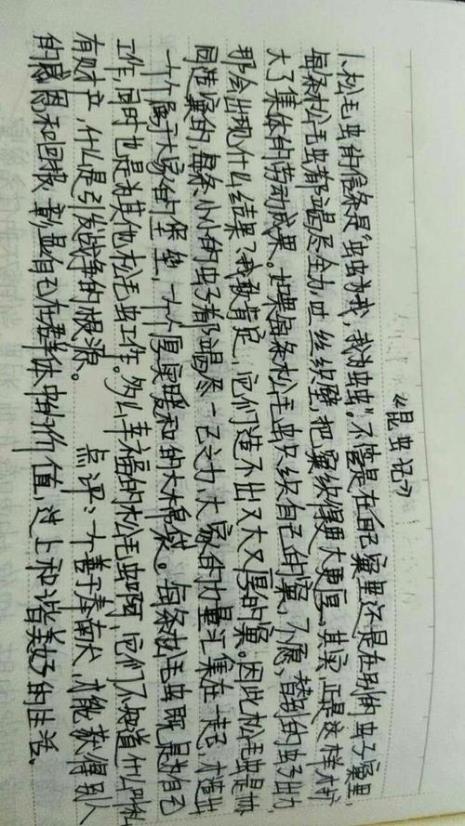 《昆虫记》
1、松毛虫的信条是"虫虫为我，我为虫虫。"不管是在自己窝里还是在别的虫子窝里，
每条松毛虫都竭尽全力吐丝织壁，把窝织得更大更厚。其实，正是这样才扩
大了集体的劳动成果。如果每条松毛虫只织自己的窝，不愿替别的虫子出力，
那会出现什么结果？我敢肯定，它们造不出又大又厚的窝。因此松毛虫是协
同造窝的，每条小小的虫子都竭尽一己之力，大家的力量汇集在一起，才造出
一个个属于大家的堡垒，一个个厚实暖和的大棉袋。每条松毛虫既是为自己
工作，同时也是为其他松毛虫工作。多么幸福的松毛虫啊，它们不知道什么叫私
有财产，什么是引发战争的根源。 点评：一个善于奉献的人，才能获得别人
的感恩和回报，彰显自己在群体中的价值，过上和谐美好的生活。